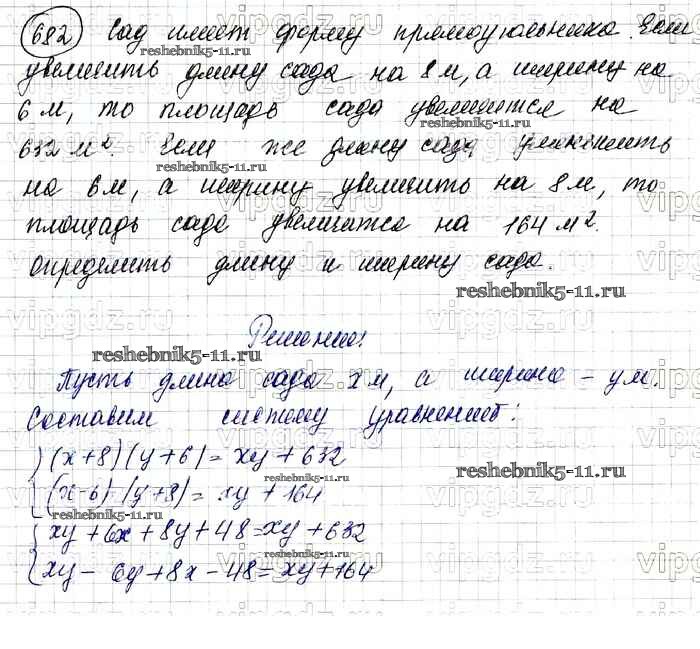 682 Сад имеет форму прямоугольника. Если
увеличить длину сада на 8 м, а ширину на
6 м, то площадь сада увеличится на
632 м². Если же длину сада уменьшить
на 6 м, а ширину увеличить на 8 м, то
площадь сада увеличится на 164 м².
Определить длину и ширину сада.
reshebnik5-11.ru
Решение:
reshebnik5-11.ru
Пусть длина сада x м, а ширина – y м.
Составим систему уравнений:
(x+8)(y+6) = xy + 632
(x-6)(y+8) = xy + 164
reshebnik5-11.ru
xy + 6x + 8y + 48 = xy + 632
xy – 6y + 8x – 48 = xy + 164